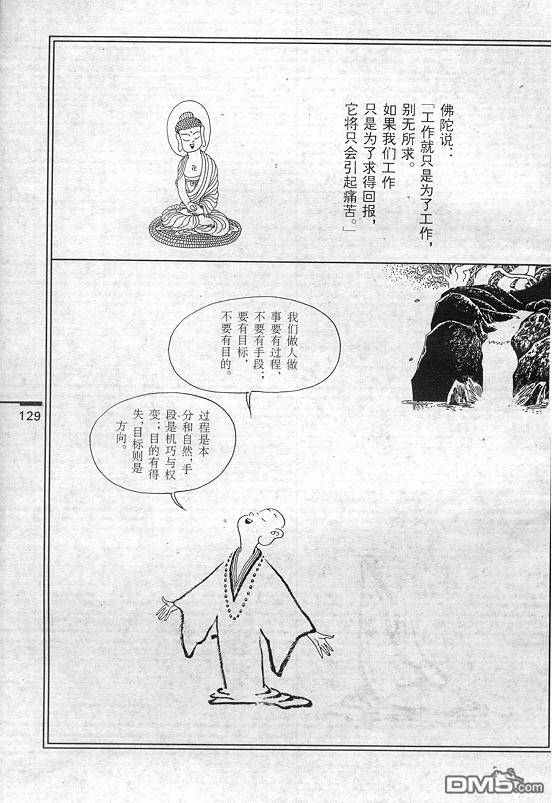 佛陀说：
「工作就只是为了工作，
别无所求。
如果我们工作
只是为了求得回报，
它将只会引起痛苦。」
我们做人做
事要有过程，
不要有手段；
要有目标，
不要有目的。
过程是本
分和自然，手
段是机巧与权
变；目的有得
失，目标则是
方向。
129
DM5.com